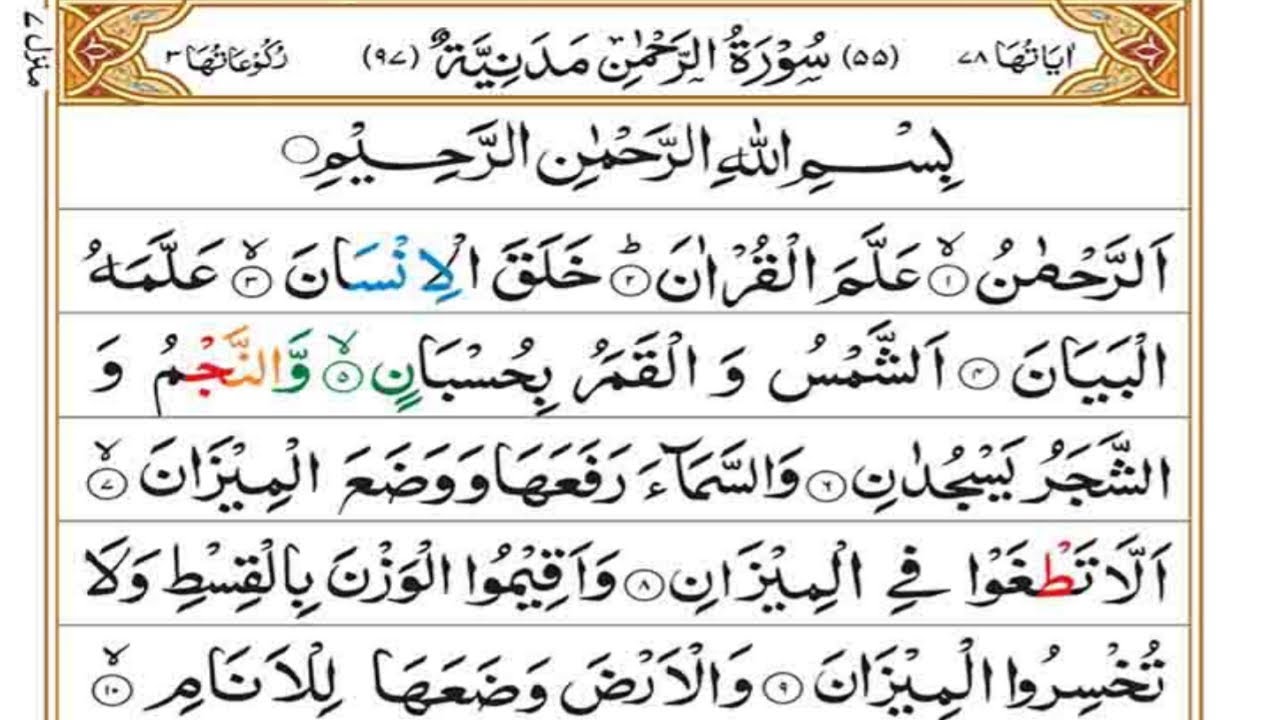 اٰيَاتُهَا ٧٨ (٥٥) سُوْرَةُ الرَّحْمٰنِ مَدَنِيَّةٌ (٩٧) رُكُوْعَاتُهَا ٣
منزل ٧
بِسْمِ اللّٰهِ الرَّحْمٰنِ الرَّحِيْمِ
اَلرَّحْمٰنُ ۙ﴿۱﴾ عَلَّمَ الْقُرْاٰنَ ؕ﴿۲﴾ خَلَقَ الْاِنْسَانَ ۙ﴿۳﴾ عَلَّمَهُ
الْبَيَانَ ﴿۴﴾ اَلشَّمْسُ وَ الْقَمَرُ بِحُسْبَانٍ ۙ﴿۵﴾ وَّالنَّجْمُ وَ
الشَّجَرُ يَسْجُدٰنِ ﴿۶﴾ وَالسَّمَآءَ رَفَعَهَا وَوَضَعَ الْمِيْزَانَ ۙ﴿۷﴾
اَلَّا تَطْغَوْا فِي الْمِيْزَانِ ﴿۸﴾ وَاَقِيْمُوا الْوَزْنَ بِالْقِسْطِ وَلَا
تُخْسِرُوا الْمِيْزَانَ ﴿۹﴾ وَالْاَرْضَ وَضَعَهَا لِلْاَنَامِ ۙ﴿۱۰﴾